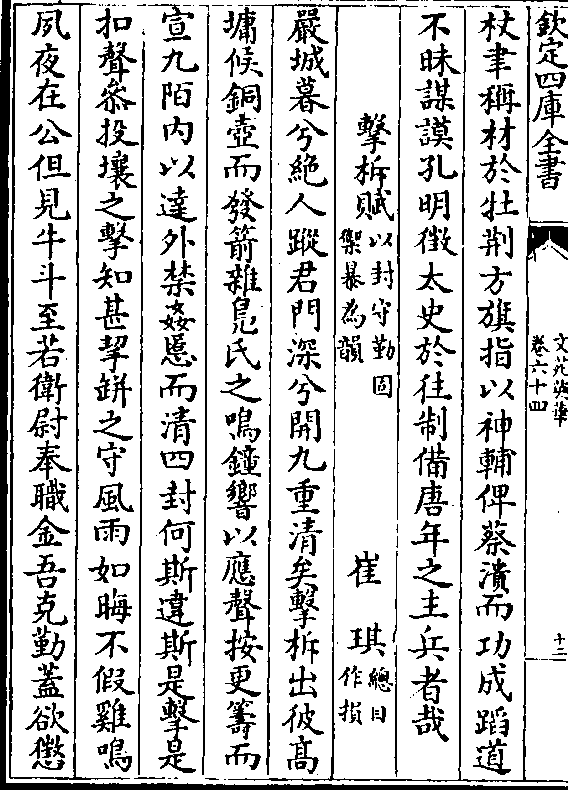 欽定四庫全書
文苑英華
卷六十四
十二
杖聿稱材於牡荆方旗指以神輔俾蔡潰而功成蹈道
不昧謀謨孔明徴太史於往制備唐年之主兵者哉
擊柝賦以封守勤固禦暴為韻 崔琪總目作損
嚴城暮兮絶人蹤君門深兮開九重清矣擊柝出彼高
墉候銅壺而發箭雜鳬氏之鳴鐘響以應聲按更籌而
宣九陌内以達外禁姦慝而清四封何斯違斯是擊是
扣聲叅投壤之擊知甚挈缾之守風雨如晦不假雞鳴
夙夜在公但見牛斗至若衛尉奉職金吾克勤蓋欲懲